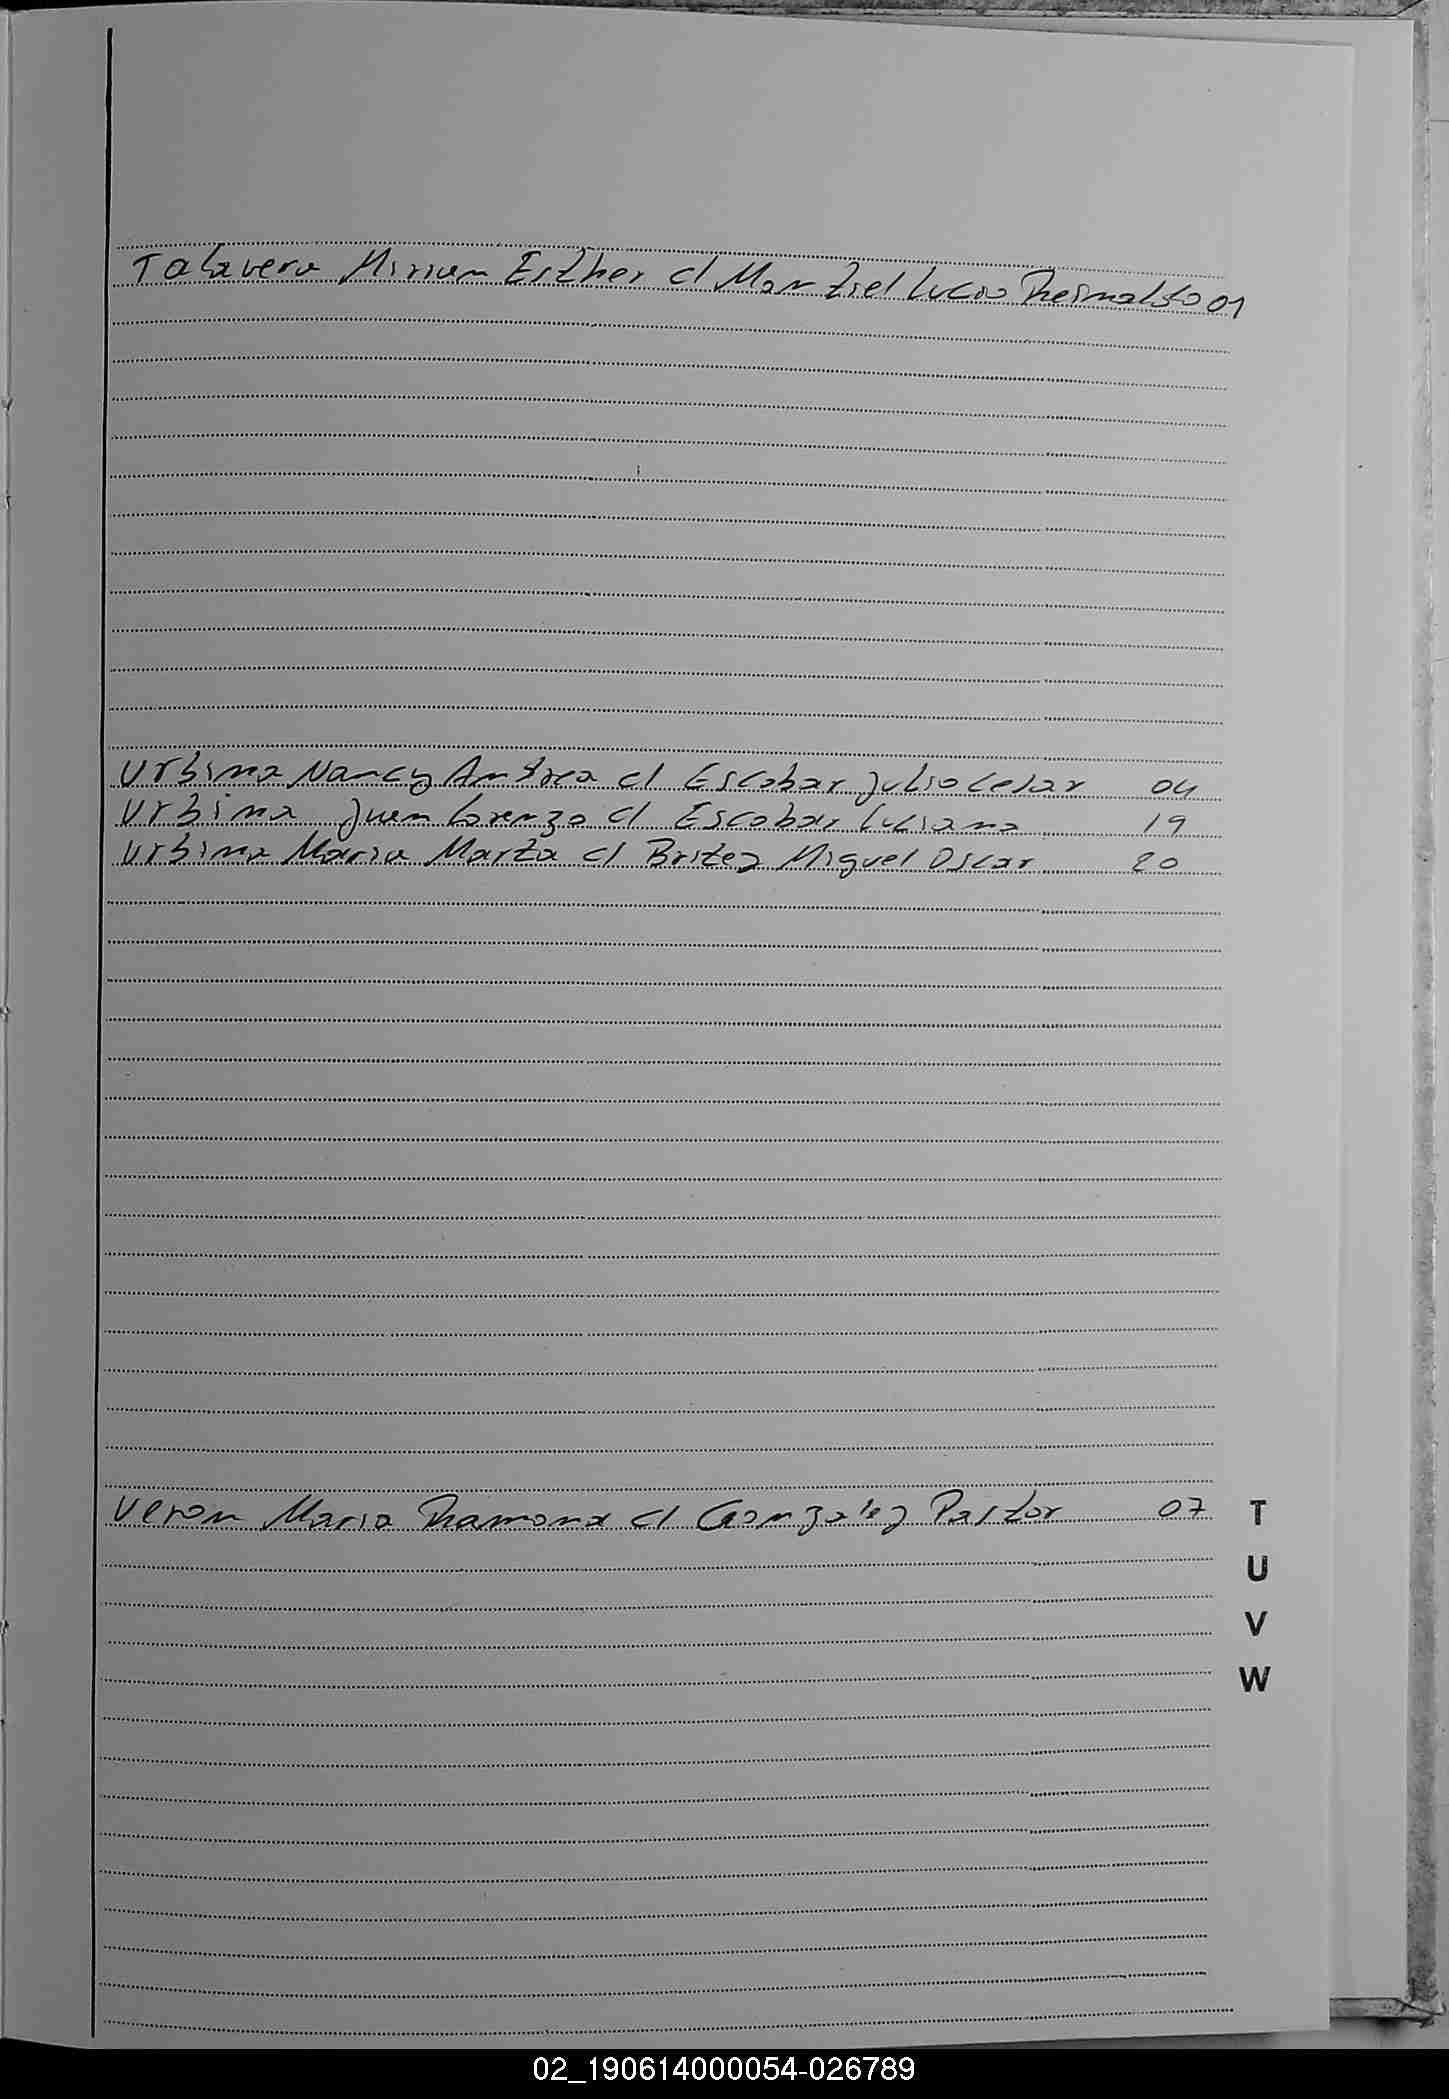 Talavera Miriam Esther c/ Montiel Lucio Reinaldo 01
Urbina Nancy Andrea c/ Escobar Julio Cesar 04
Urbina Juan Lorenzo c/ Escobar Luciana 19
Urbina Maria Marta c/ Britez Miguel Oscar 20
Veron Maria Ramona c/ Gonzalez Pastor 07
T
U
V
W
02_190614000054-026789